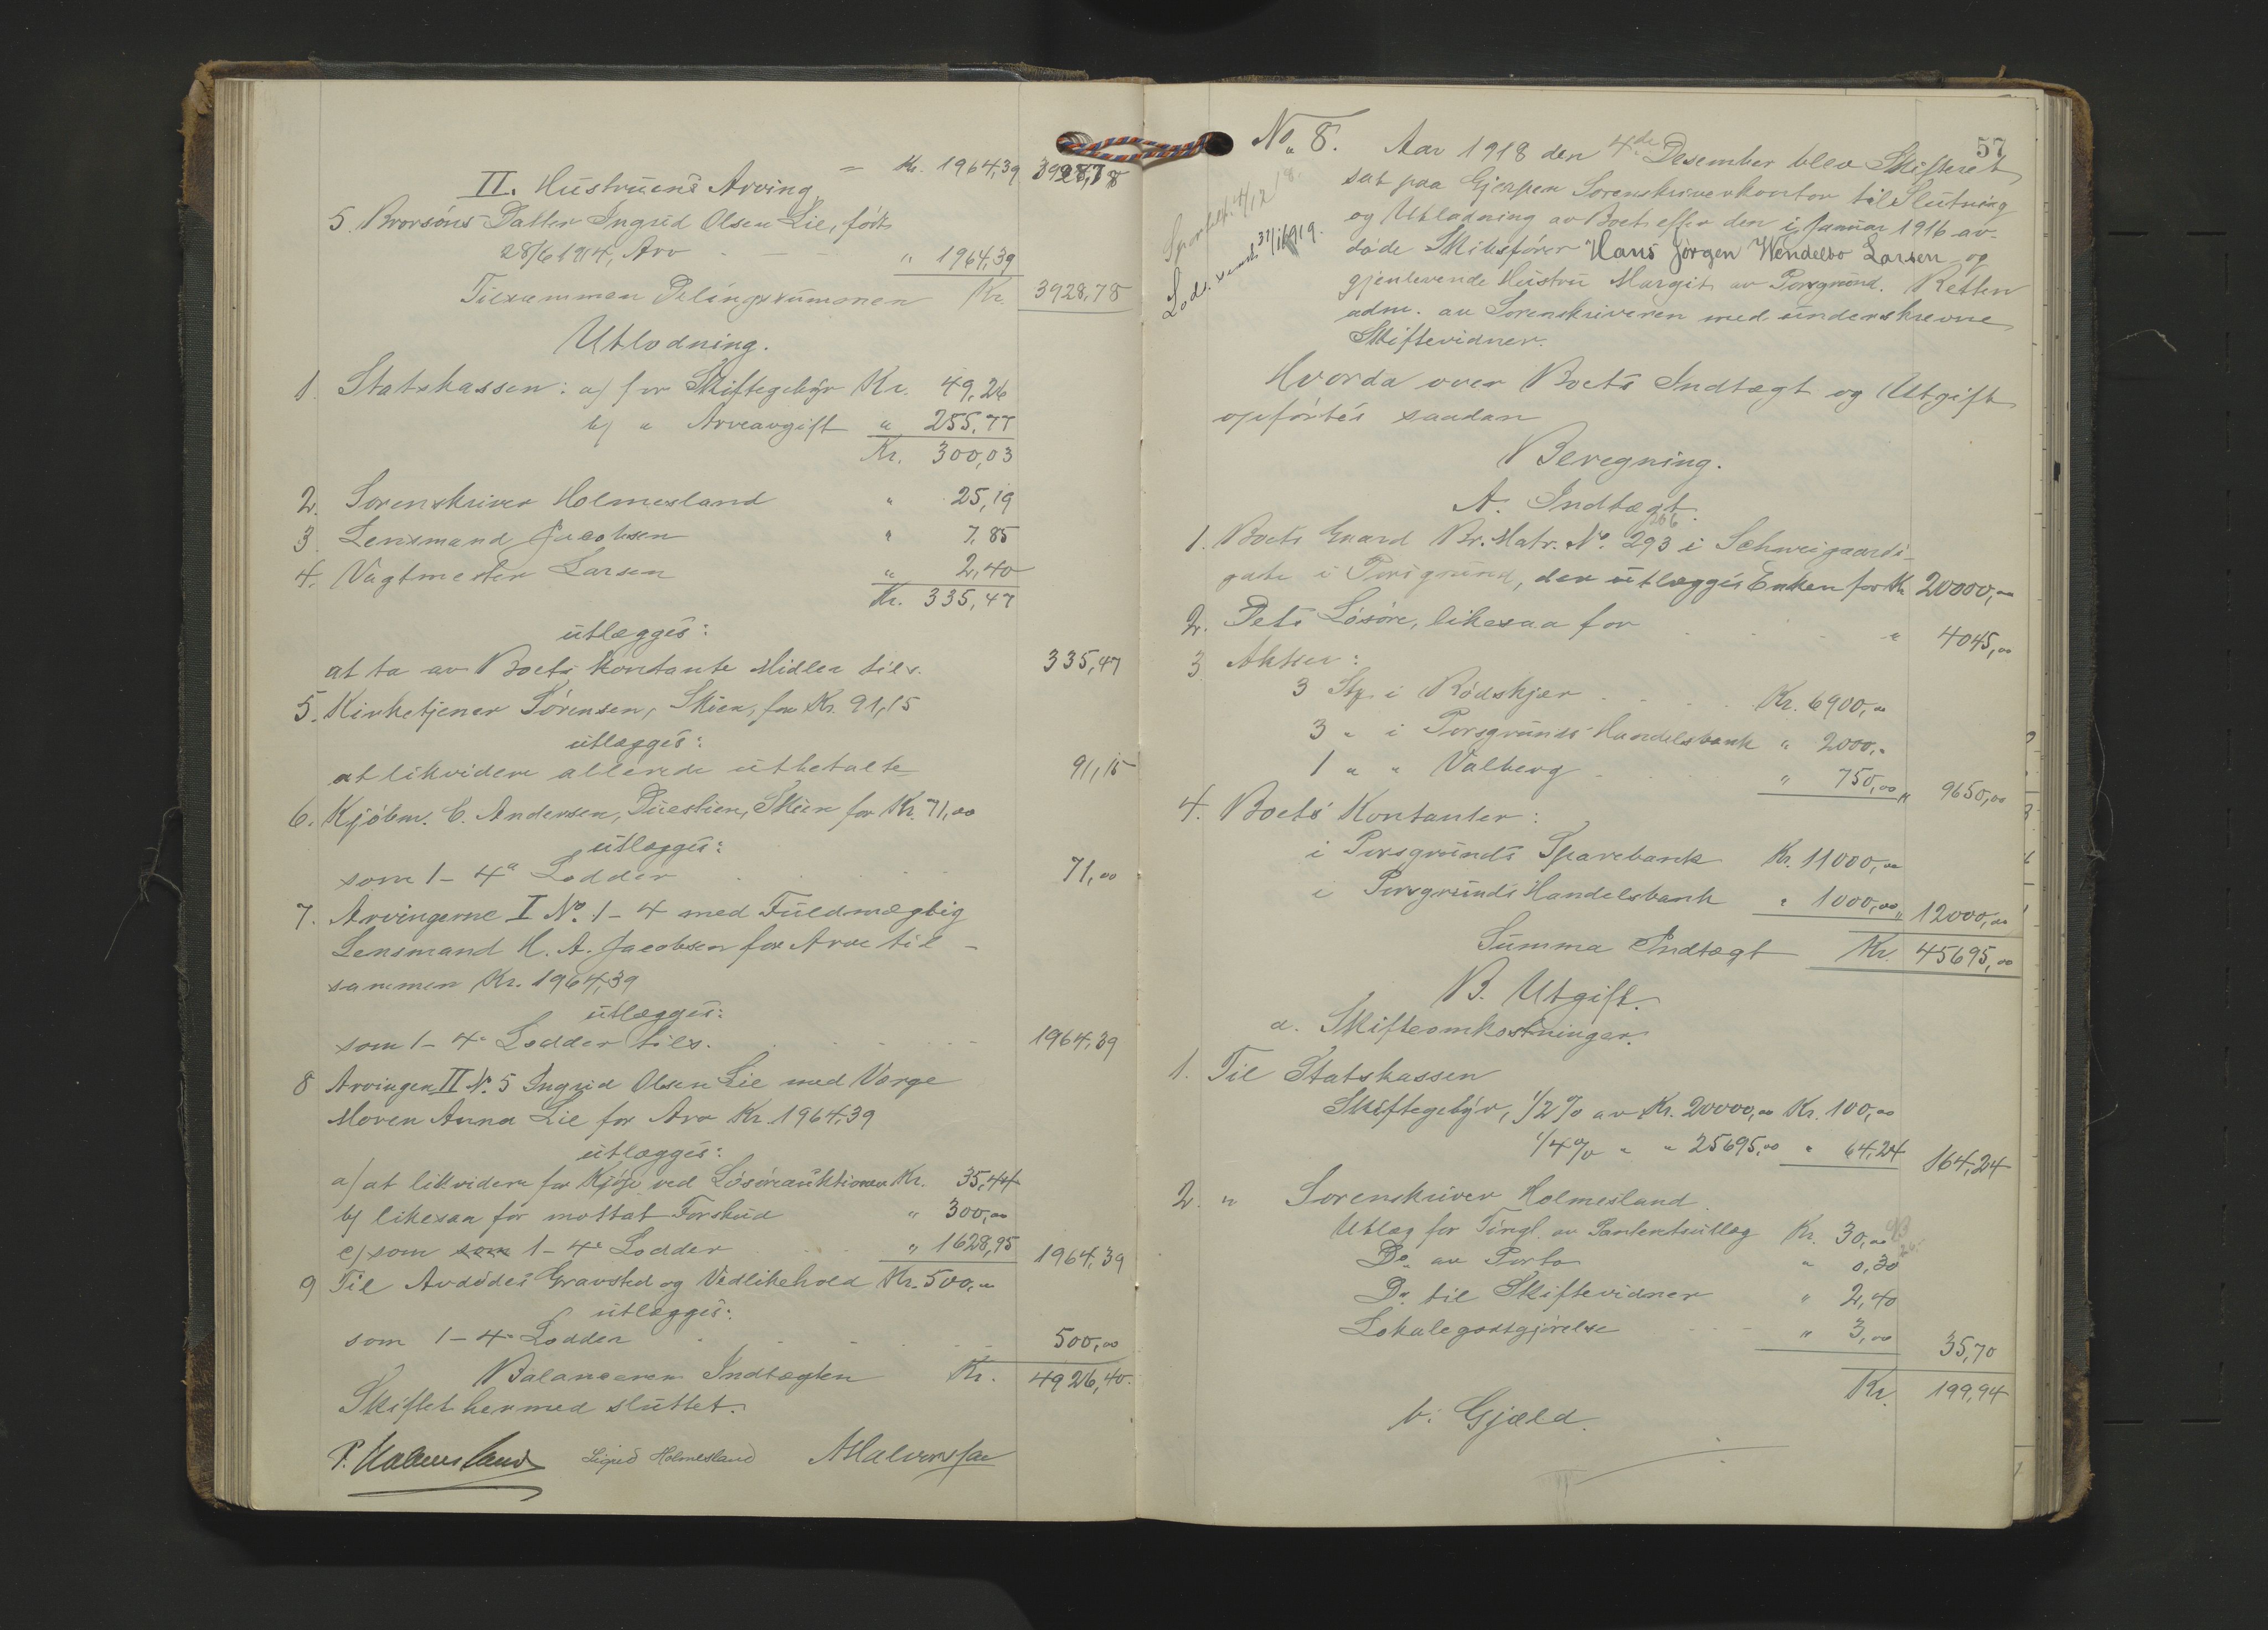 = Kr. 1964,39 3928,78
II. Hustruens Arving
5. Brorsøns Datter Ingrid Olsen Lie, født
28/6 1914, Arv " 1964,39
Tilsammen Delingssummen Kr. 3928,78
Utlodning.
1. Statskassen: a) for Skiftegebyr Kr. 49,26
b) " Arveavgift " 255,77
Kr. 300,03
2. Sorenskriver Holmesland " 25,19
3. Lensmand Jacobsen " 7,85
4. Vagtmester Larsen " 2,40
Kr. 335,47
utlægges:
at ta av Boets kontante Midler tils. 335,47
5. Kirketjener Sørensen, Skien, for Kr. 91,15
utlægges:
at likvidere allerede utbetalte 91,15
6. Kjøbm. C. Andersen, Duestien, Skien for Kr. 71,00
utlægges:
som 1-4a Lodder 71,00
7. Arvingerne I No. 1-4 med Fuldmægtig
Lensmand H. A. Jacobsen for Arve til-
sammen Kr. 1964,39
utlægges:
som 1-4 Lodder tils. 1964,39
8 Arvingen II No. 5 Ingrid Olsen Lie med Verge
Moren Anna Lie for Arv Kr. 1964,39
utlægges:
a) at likvidere for Kjøp ved Løsøreauktionen Kr. 35,44
b) likesaa for mottat Forskud " 300,00
c) som som 1-4 Lodder " 1628,95 1964,39
9 Til Avdødes Gravsted og Vedlikehold Kr. 500,00
utlægges:
som 1-4 Lodder 500,00
Balancerer Indtægten Kr. 4926,40.
Skiftet hermed sluttet.
P. Holmesland Sigrid Holmesland A Halvorsen
57
No. 8. Aar 1918 den 4de Desember blev Skifteret
sat paa Gjerpen Sorenskriverkontor til Slutning
og Utlodning av Boet efter den 1 Januar 1916 av-
døde Skibsfører Hans Jørgen Wendelbo Larsen og
gjenlevende Hustru Margit av Porsgrund. Retten
adm. av Sorenskriveren med underskrevne
Skiftevidner.
Sportelb. 4/12 18.
Lods. sendt 31/1 1919.
Hvorda over Boets Indtægt og Utgift
opførtes saadan
Beregning.
A. Indtægt.
266
1. Boets Gaard Br. Matr. No. 293 i Schweigaards-
gate i Porsgrund, der utlægges Enken for Kr. 20000,00
2. Dets Løsøre, likesaa for " 4045,00
3 Aktier:
3 Stk. i Rødskjær Kr. 6900,00
3 " i Porsgrunds Handelsbank " 2000,00
1 " " Valberg " 750,00 " 9650,00
4. Boets Kontanter:
i Porsgrunds Sparebank Kr. 11000,00
i Porsgrunds Handelsbank " 1000,00 " 12000,00
Summa Indtægt Kr. 45695,00
B. Utgift.
a. Skifteomkostninger.
1. Til Statskassen
Skiftegebyr, 1/2% av Kr. 20000,00 Kr. 100,00
1/4% " " 25695,00 " 64,24 164,24
2. " Sorenskriver Holmesland
Utlæg for Tingl. av Panteutlæg Kr. 30,00
Do. av Porto " 0,30
Do. til Skiftevidner " 2,40
Lokalegodtgjørelse " 3,00 35,70
Kr. 199,94
b. Gjæld.